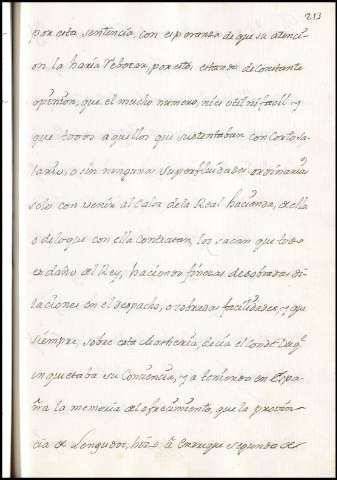 213
por esta sentencia, con esperanza de que su atenci-
on la haria revocar, por esto, estando de constante
opinion, que el mucho numero, ni es util ni facil: y
que todos aquellos que sustentaban con corto sa-
lario, o sin ninguno superfluidades ordinarias
solo con venir al Calor de la Real hacienda, de ella
o de los que con ella contratan, los sacan que todo
es daño del Rey, haciendo finezas de sobradas di-
laciones en el despacho, o sobradas facilidades, y que
siempre, sobre esta Matheria, decia el Conde Duq.^e
inquietaba su Conciencia, y a teniendo en Espa-
ña la memoria del ofrecimiento, que la provin-
cia de Lenguadoc, hizo á Enrrique segundo de